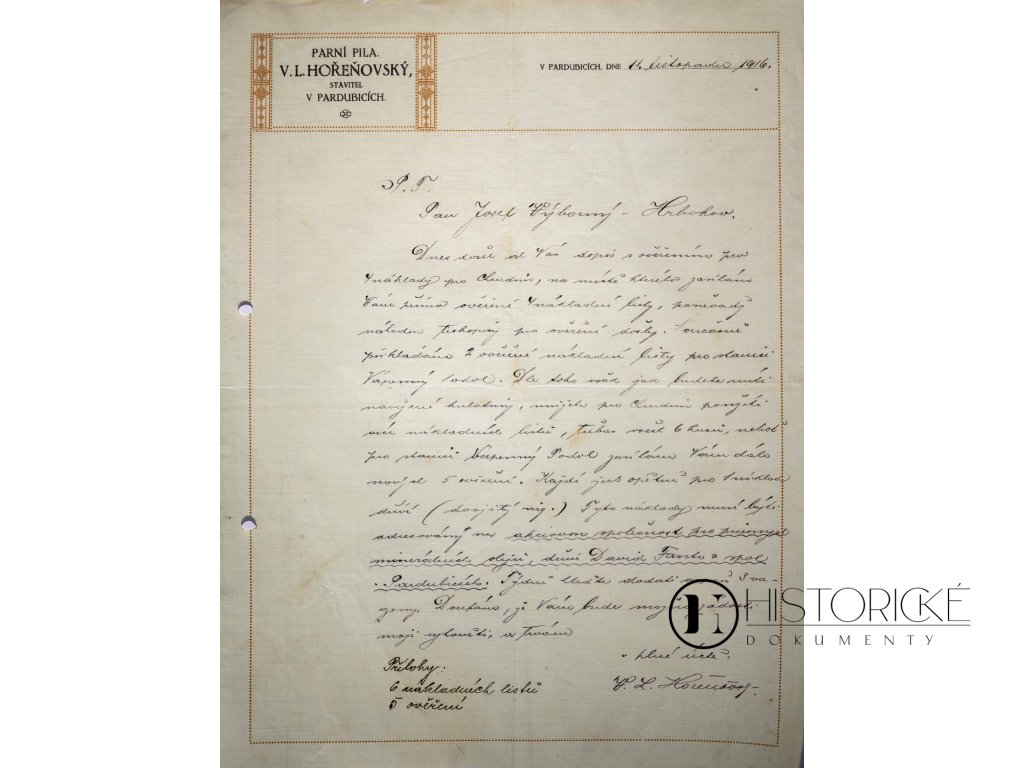 PARNÍ PILA.
V. L. HOŘEŇOVSKÝ,
STAVITEL
V PARDUBICÍCH.
V PARDUBICÍCH, DNE 11. listopadu 1916.
P. T.
Pan Josef Výborný - Hrbokov.
Dnes došel od Vás dopis s ověřením pro
4 náklady pro Chrudim, na místě kterého zasílám
Vám přímo ověřené 4 nákladní listy, poněvadž
pro ověřené došly. Současně
přikládám 2 ověřené nákladní listy pro stanici
Vápenný Podol. Dle toho však jak budete míti
navožené kulatiny, můžete pro Chrudim použíti
více nákladních listů, tubos všech 6 kusů, neboť
pro stanici Vápenný Podol zasílám Vám dále
nových 5 ověření. Každé jest opětně pro 1 náklad
dříví (dvojitý vůz.) Tyto náklady musí býti
adresovány na akciovou společnost pro průmysl
minerálních olejů, dříví David Fanto & spol.
Pardubicích. Týdně hleďte dodati 3 va-
gony. Doufám, že Vám bude možno žádosti
moji vyhověti, a trvám
v plné úctě:
V. L. Hořeňovský
Přílohy:
6 nákladních listů
5 ověření
HISTORICKÉ
DOKUMENTY